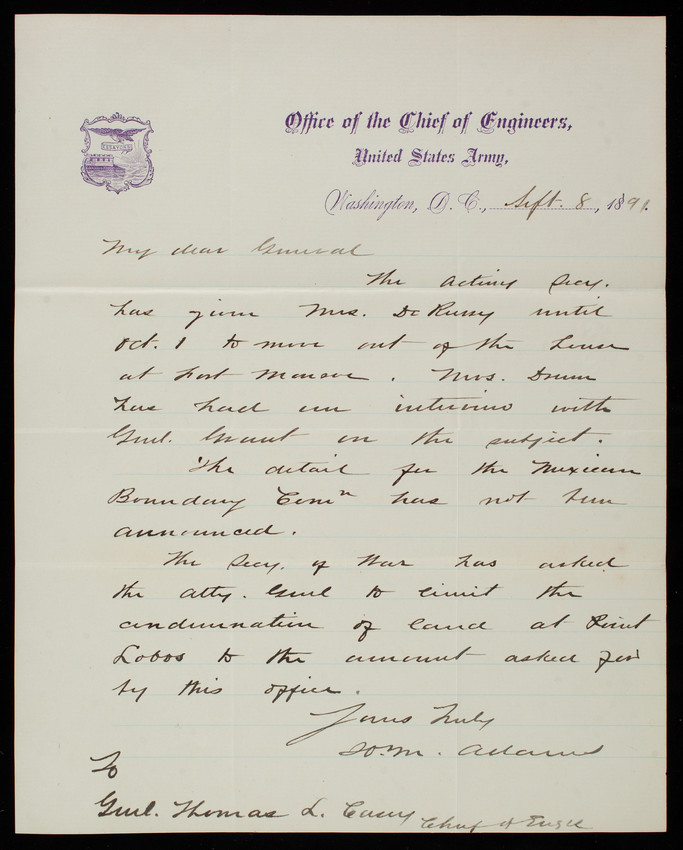 Office of the Chief of Engineers,
United States Army,
Washington, D. C., Sept. 8, 1891.
My dear General
The Acting Secy.
has given Mrs. De Russy until
Oct. 1 to move out of the house
at Fort Monroe. Mrs. Drum
has had an interview with
Genl. Grant on the subject.
The detail for the Mexican
Boundary Comn has not been
announced.
The Secy. of War has asked
the atty. Genl to limit the
condemnation of land at Point
Lobos to the amount asked for
by this office.
Yours truly
W.M. Adams
To
Genl. Thomas L. Casey
Chief of Engrs